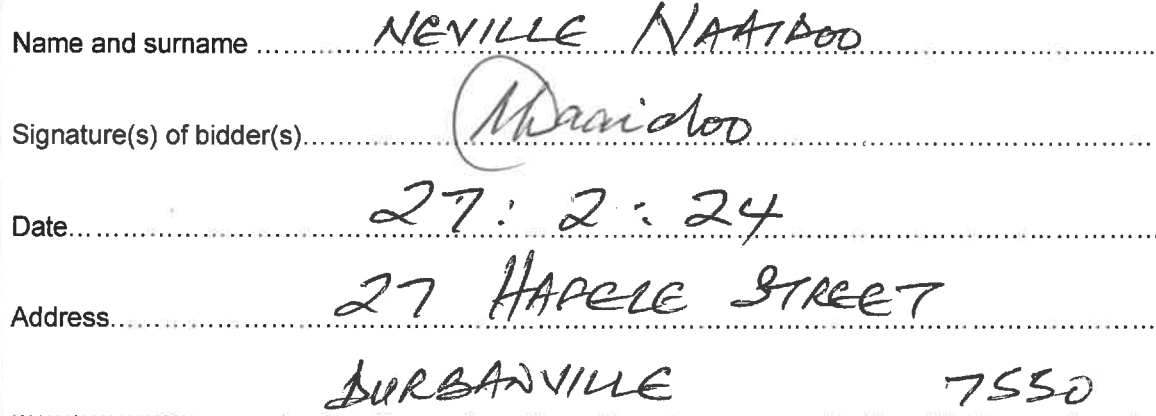 Name and surname NEVILLE NAAIDOO
Signature(s) of bidder(s) Naaidoo
Date 27: 2 : 24
Address 27 STREET
DURBANVILLE 7550